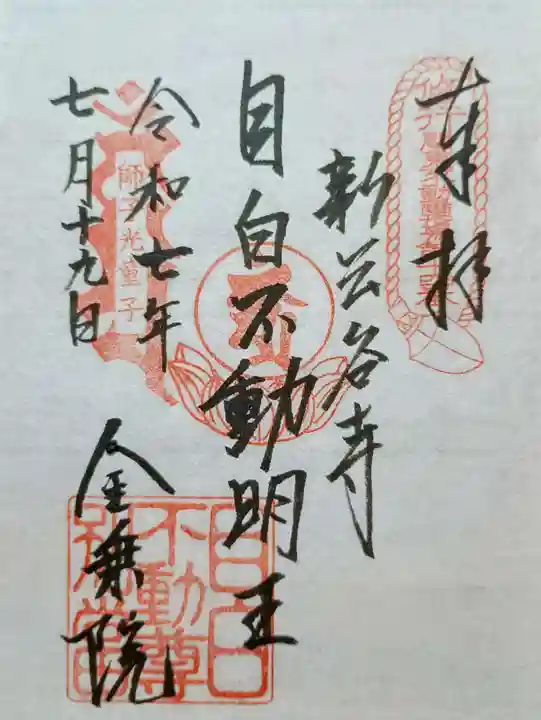 奉拝
新長谷寺
目白不動明王
令和七年
七月十九日
金乗院
師子光童子
目白
不動尊
別當